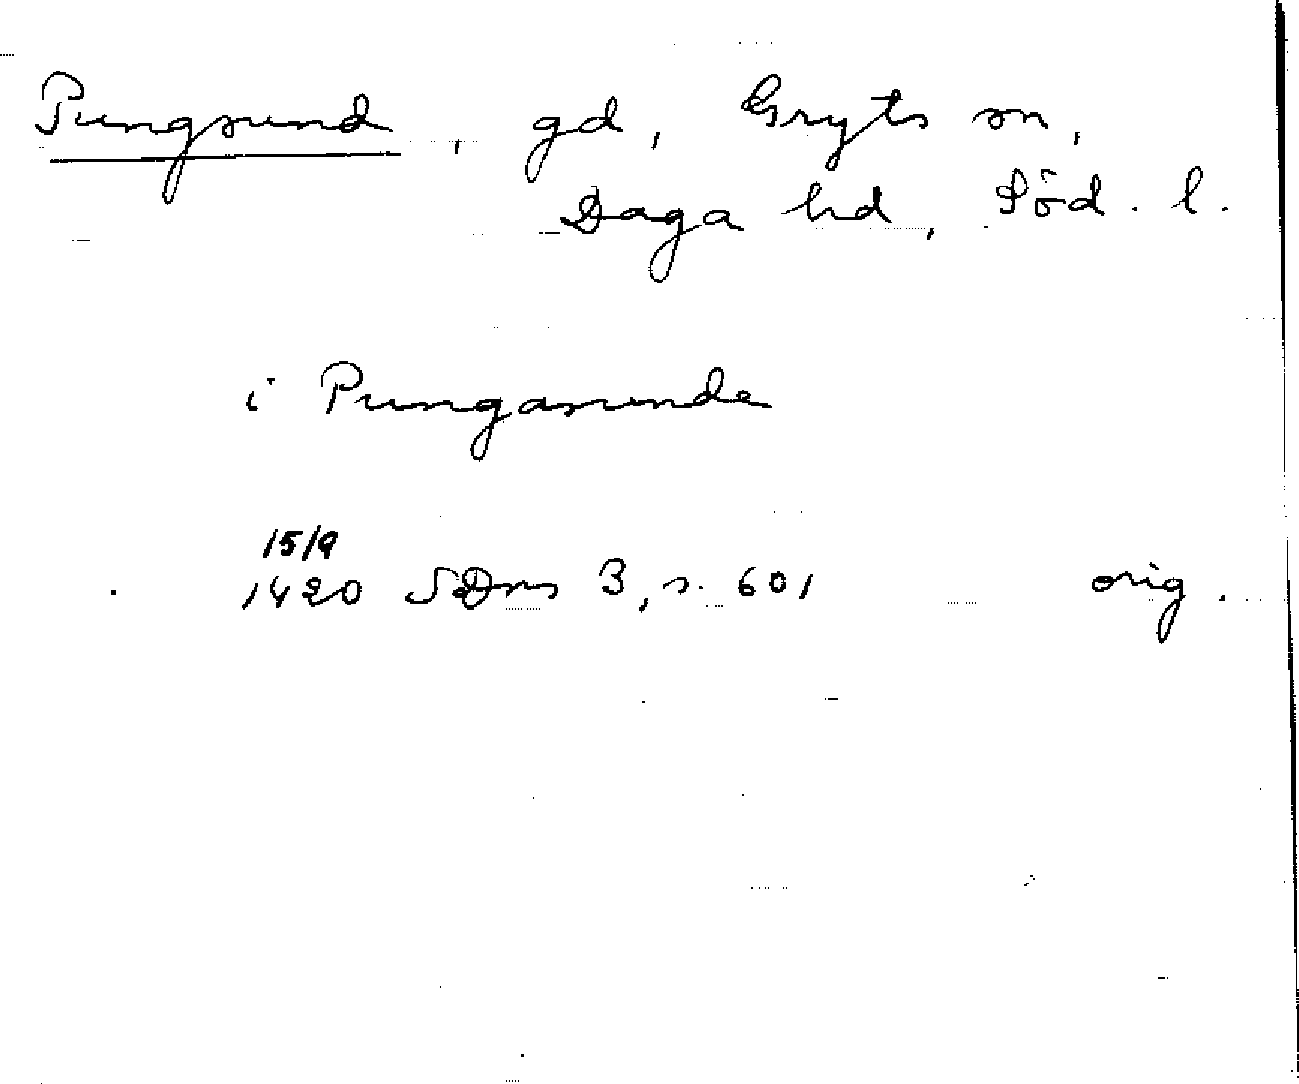 Pungsund, gd, Gryts sn,
Daga hd, Söd. l.
i Pungasunda
15/9
1420 SDns 3, s. 601 orig.